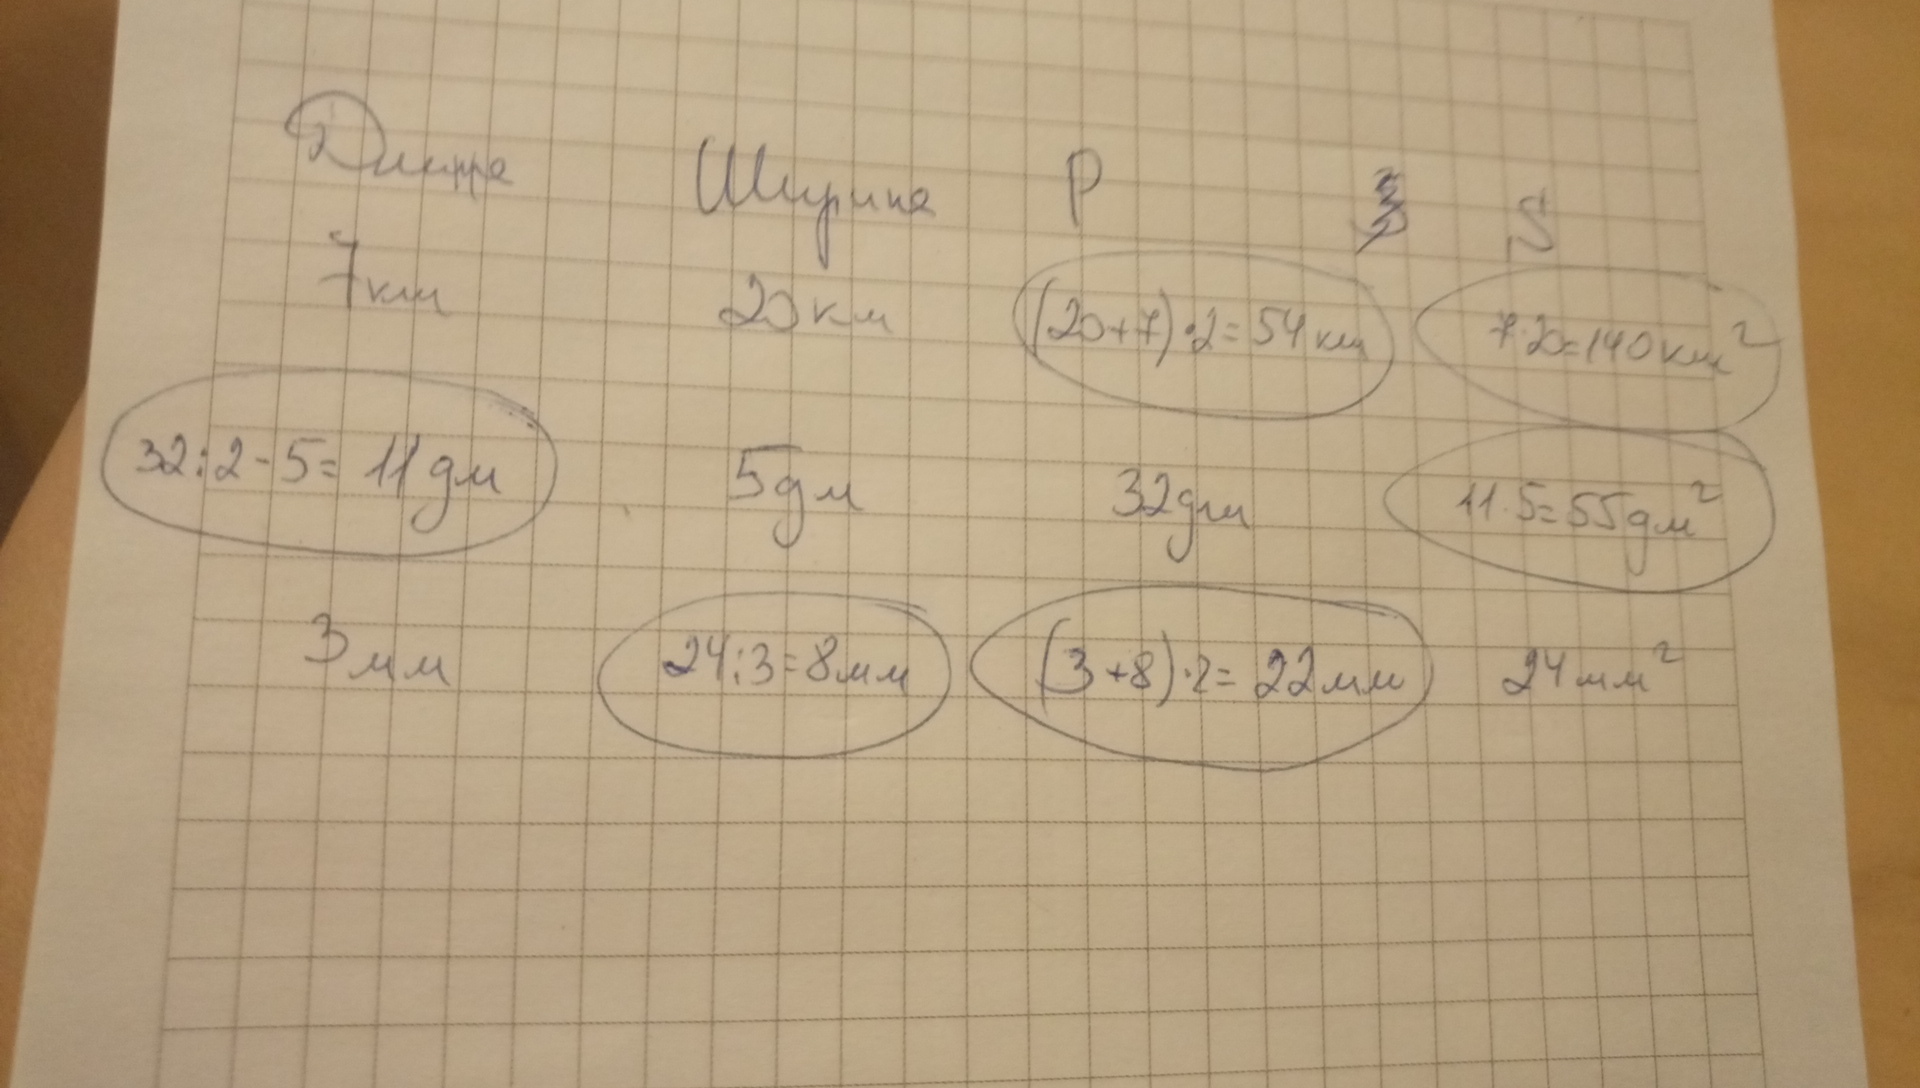 Длина Ширина P S
7 км 20 км (20+7)·2=54 км 7·20=140 км²
32:2-5= 11 дм 5 дм 32 дм 11·5=55 дм²
3 мм 24:3=8 мм (3+8)·2= 22 мм 24 мм²